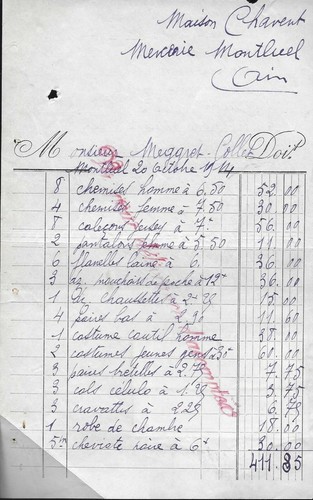 Maison Chavent
Mercerie Montluel
Ain
Monsieur Meggret-Collet Doit
Montluel 20 Octobre 1914
8 chemises homme à 6.50 52.00
4 chemises femme à 7.50 30.00
8 caleçons à 7. 56.00
2 pantalons femme à 5.50 11.00
6 flanelles laine à 6 36.00
3 dz. mouchoirs de poche à 12 36.00
1 Dz chaussettes à 15.00
4 paires bas à 2.90 11.60
1 costume coutil homme 38.00
2 costumes jeunes gens 30 60.00
3 paires bretelles à 2.75 7.75
3 cols célulo à 1.25 3.75
3 cravattes à 2.25 6.75
1 robe de chambre 18.00
5m cheviote noire à 6f 30.00
411.85